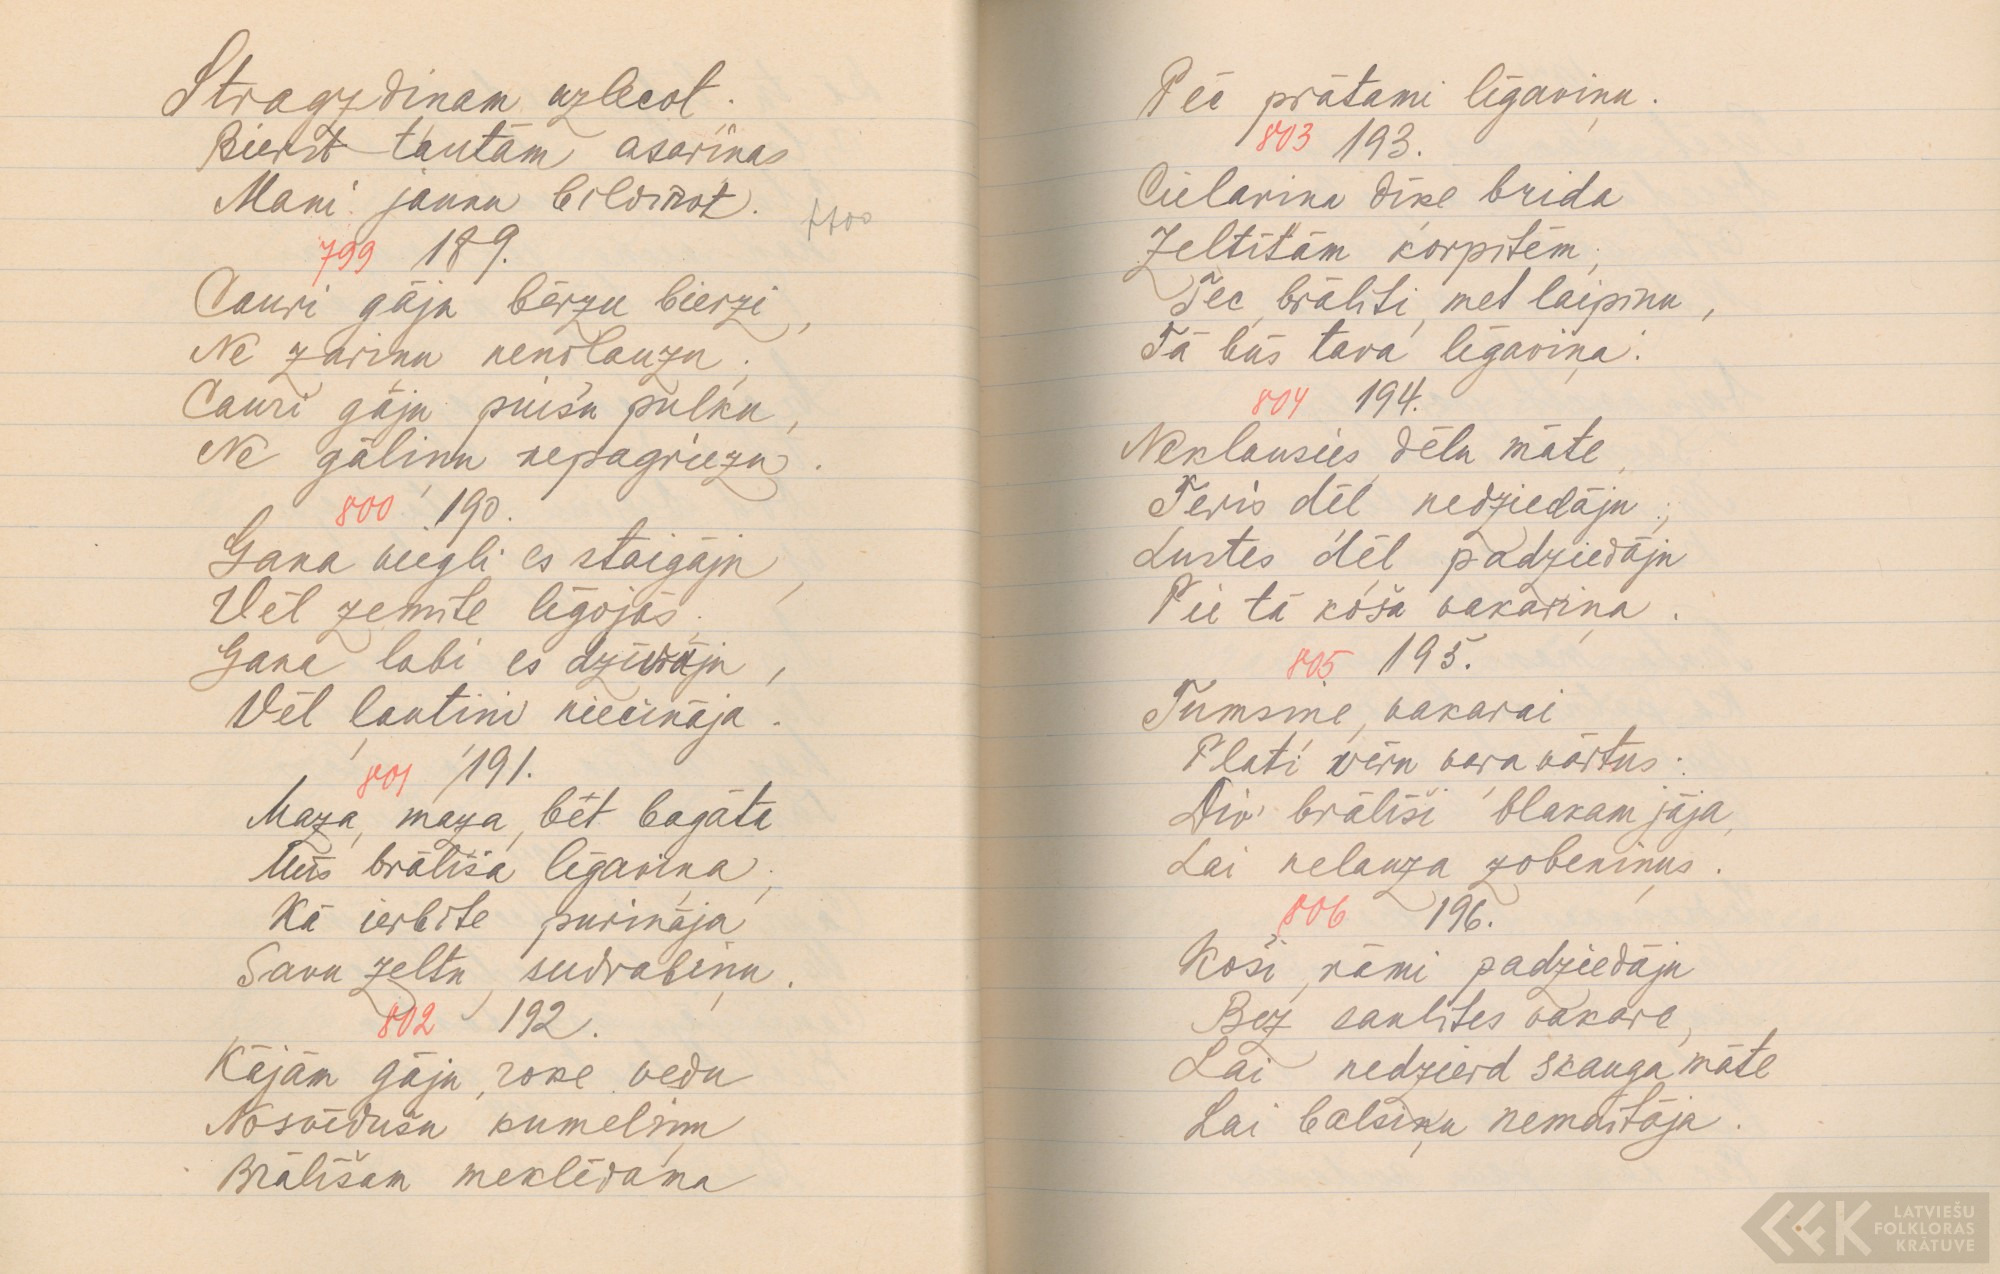 Stragzdiņam uzlecot.
Bierīt tautām asariņas
Mani jaunu bildinot.
7700
799 189.
Cauri gāju bērzu bierzi,
Ne zariņu nenolauzu;
Cauri gāju puišu pulku,
Ne gāliņu nepagriezu.
800 190.
Gana viegli es staigāju,
Vēl zemīte līgojās;
Gana labi es dzīvāju,
Vēl ļautiņi niecināja.
801 191.
Maza, maza, bēt bagāta
Mūs brālīša līgaviņa;
Kā ierbīte purināja
Savu zeltu, sudrabiņu.
802 192.
Kājām gāju, roke vedu
Nosvīdušu kumeliņu
Brālīšam meklēdama
Pēc prātami līgaviņu.
803 193.
Cielaviņa dīķe brida
Zeltītām korpītēm;
Tec, brālīti, met laipiņu,
Tā būs tava līgaviņa.
804 194.
Neklausies, dēlu māte,
Teris dēļ nedziedāju;
Lustes dēļ padziedāju
Pie tā koša vakariņa.
805 195.
Tumsiņe, vakarai
Plati vēru vara vārtus:
Div' brālīši blakam jāja,
Lai nelauza zobeniņus.
806 196.
Koši, rāmi padziedāju
Bez saulītes vakare,
Lai nedzierd skauga māte
Lai balsiņu nemaitāja.
LATVIEŠU
FOLKLORAS
KRĀTUVE